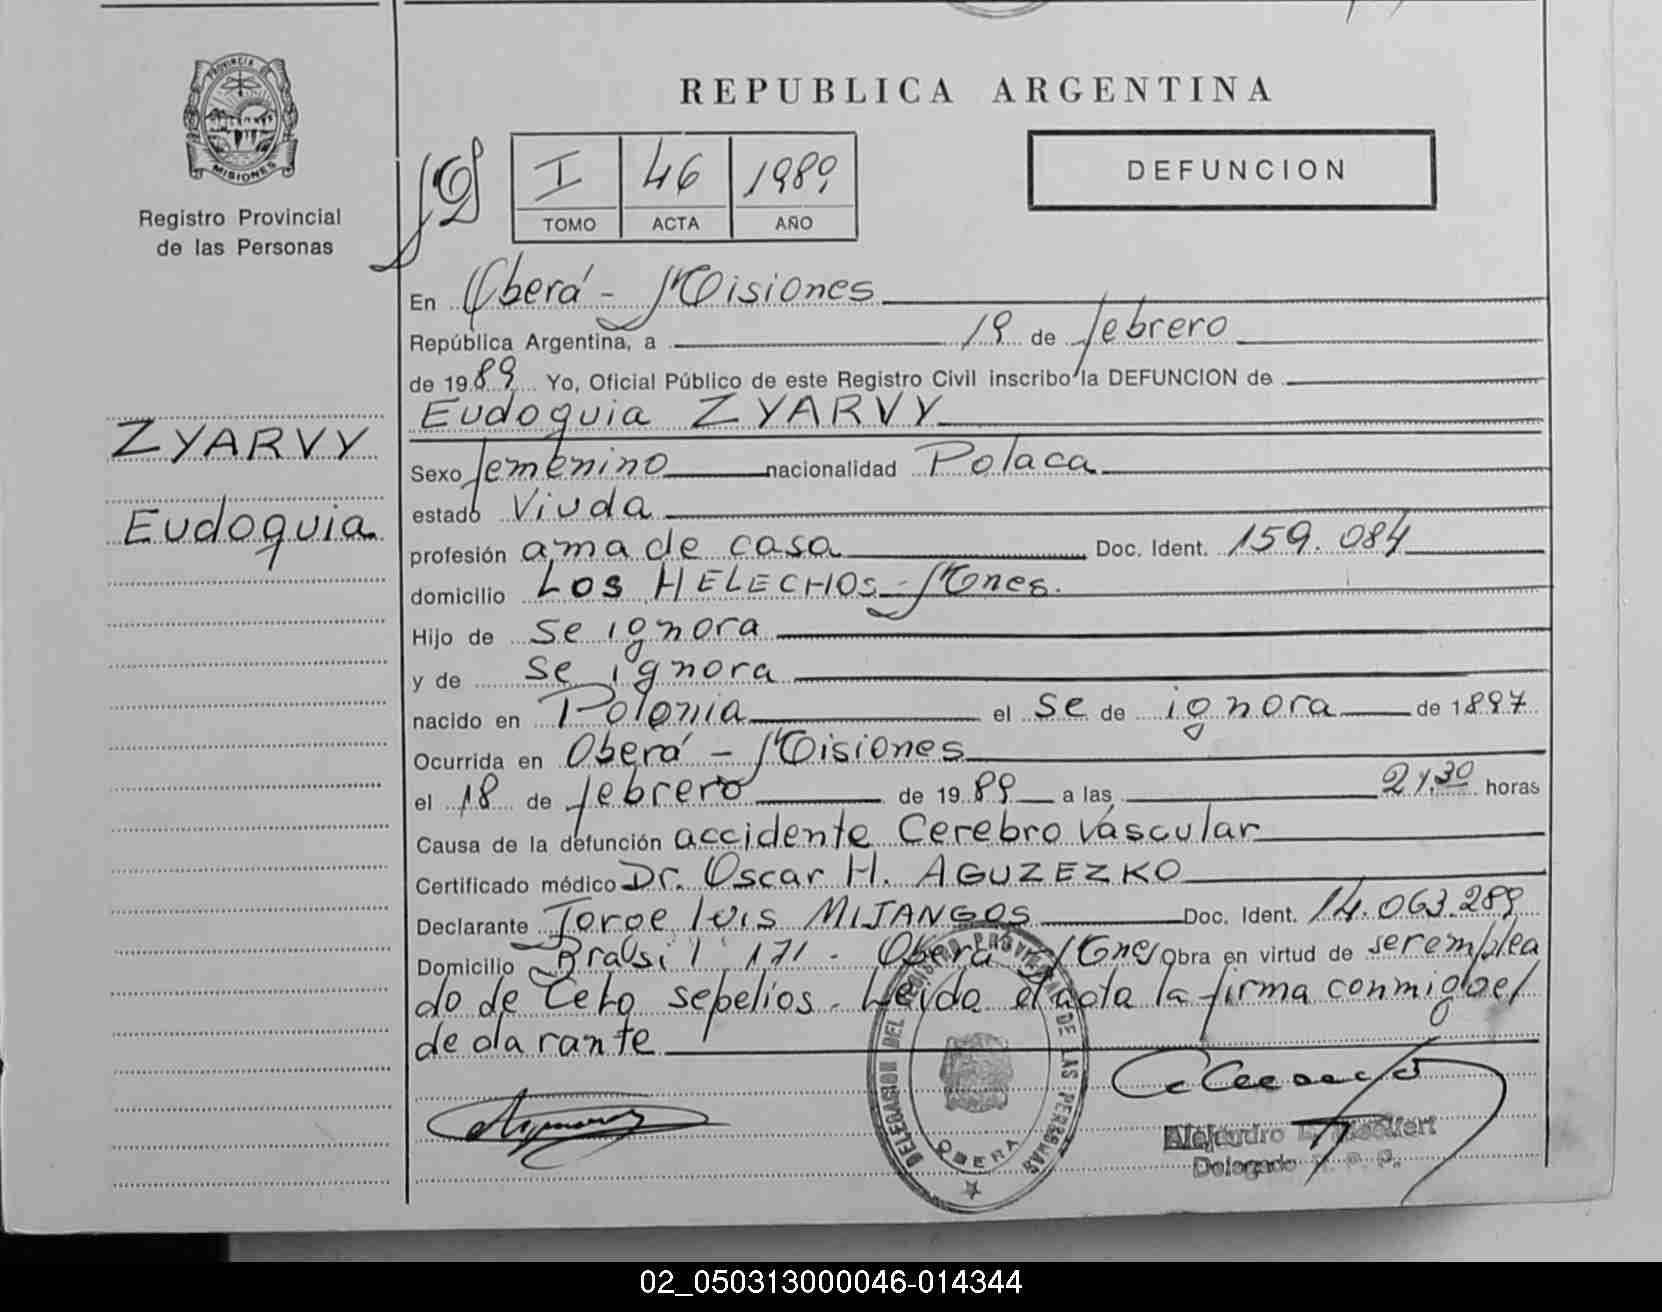 PROVINCIA DE
MISIONES
Registro Provincial
de las Personas
REPUBLICA ARGENTINA
I 46 1989
TOMO ACTA AÑO
DEFUNCION
En Oberá - Misiones
República Argentina, a 19 de febrero
de 1989 Yo, Oficial Público de este Registro Civil inscribo la DEFUNCION de
Eudoquia ZYARVY
ZYARVY
Eudoquia
Sexo femenino nacionalidad Polaca
estado Viuda
profesión ama de casa Doc. Ident. 159.084
domicilio LOS HELECHOS - Mnes.
Hijo de se ignora
y de se ignora
nacido en Polonia el se de ignora de 1897
Ocurrida en Oberá - Misiones
el 18 de febrero de 1989 a las 21,30 horas
Causa de la defunción accidente Cerebro vascular
Certificado médico Dr. Oscar H. AGUZEZKO
Declarante Jorge luis MIJANGOS Doc. Ident. 14.063.289
Domicilio Brasil 171 - Oberá Mnes Obra en virtud de ser emplea
do de Celo sepelios. Leída el acta la firma conmigo el
declarante
DELEGACION DEL REGISTRO PROVINCIAL DE LAS PERSONAS
OBERA
Alejandro
Delegado R. P. P.
02_050313000046-014344